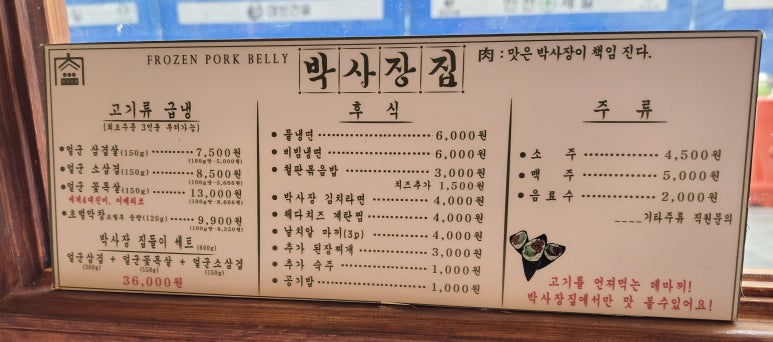 FROZEN PORK BELLY
박사장집
肉 : 맛은 박사장이 책임 진다.
고기류 급냉
(최소주문 3인분 부터가능)
얼군 삼겹살(150g) 7,500원
(100g당-5,000원)
얼군 소삼겹(150g) 8,500원
(100g당-5,666원)
얼군 꽃목살(150g) 13,000원
(100g당-8,666원)
세계4대진미, 이베리코
초벌막창 초벌후 중량(120g) 9,900원
(100g당-8,250원)
박사장 집들이 세트(600g)
얼군삼겹 + 얼군꽃목살 + 얼군소삼겹
(300g) (150g) (150g)
36,000원
후 식
물냉면 6,000원
비빔냉면 6,000원
철판볶음밥 3,000원
치즈추가 1,500원
박사장 김치라면 4,000원
체다치즈 계란찜 4,000원
날치알 마끼(3p) 4,000원
추가 된장찌개 3,000원
추가 숙주 1,000원
공기밥 1,000원
주 류
소 주 4,500원
맥 주 5,000원
음료수 2,000원
____기타주류 직원문의
고기를 얹져먹는 데마끼!
박사장집에서만 맛 볼수있어요!